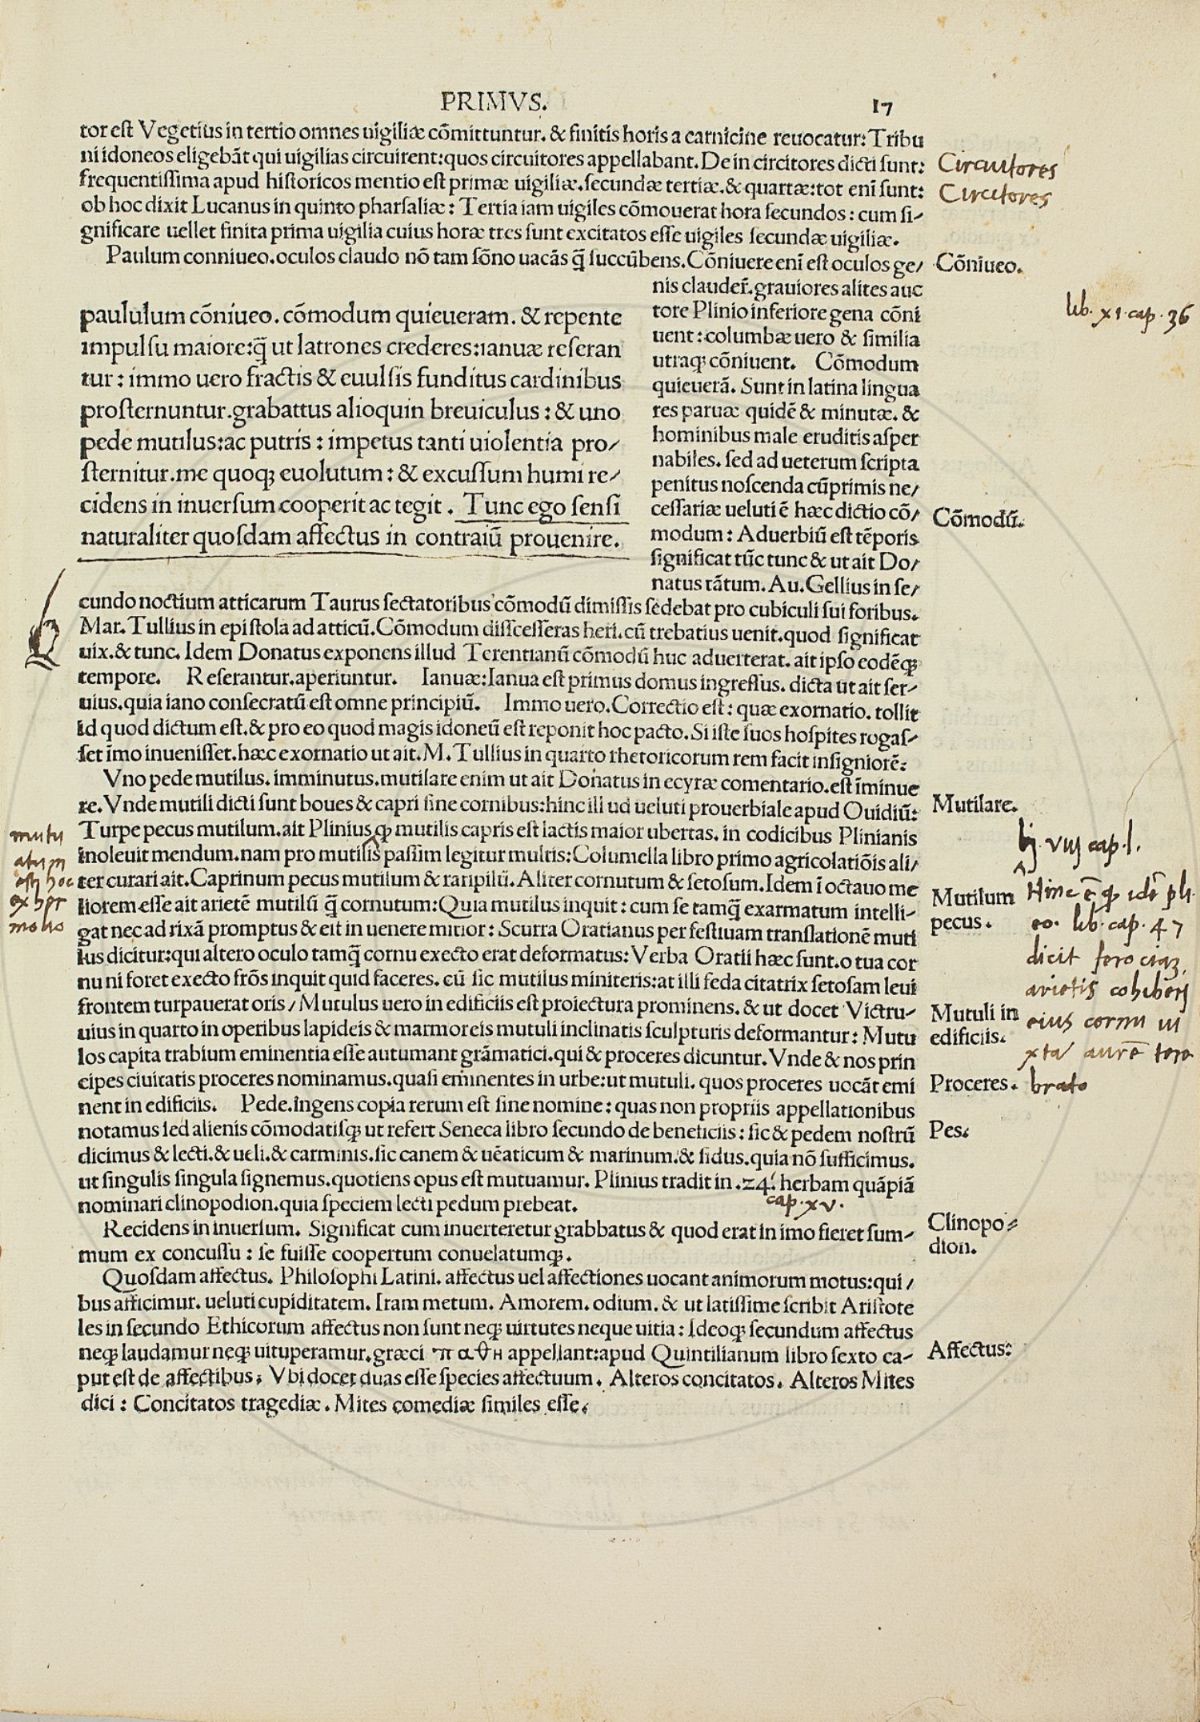 PRIMVS. 17
tor est Vegetius in tertio omnes uigiliæ cōmittuntur. & finitis horis a carnicine reuocatur: Tribu
ni idoneos eligebāt qui uigilias circuirent: quos circuitores appellabant. De in circitores dicti sunt:
Circuitores
frequentissima apud historicos mentio est primæ uigiliæ. secundæ tertiæ. & quartæ: tot enī sunt:
Circitores
ob hoc dixit Lucanus in quinto pharsaliæ: Tertia iam uigiles cōmouerat hora secundos: cum si-
gnificare uellet finita prima uigilia cuius horæ tres sunt excitatos esse uigiles secundæ uigiliæ.
Paulum conniueo. oculos claudo nō tam sōno uacās q̄ succūbens. Cōniuere enī est oculos ge/
Cōniueo.
nis claudeř. grauiores alites auc
tore Plinio inferiore gena cōni
lib. xi. cap. 36
uent: columbæ uero & similia
utraq; cōniuent. Cōmodum
quieuerā. Sunt in latina lingua
res paruæ quidē & minutæ. &
hominibus male eruditis asper
nabiles. sed ad ueterum scripta
penitus noscenda cūprimis ne/
cessariæ ueluti ē hæc dictio cō/
Cōmodū.
modum: Aduerbiū est tēporis
significat tūc tunc & ut ait Do/
natus tātum. Au. Gellius in se/
paululum cōniueo. cōmodum quieueram. & repente
impulsu maiore: q̄ ut latrones crederes: ianuæ reseran
tur: immo uero fractis & euulsis funditus cardinibus
prosternuntur. grabattus alioquin breuiculus: & uno
pede mutilus: ac putris: impetus tanti uiolentia pro/
sternitur. me quoq; euolutum: & excussum humi re/
cidens in inuersum cooperit ac tegit. Tunc ego sensi
naturaliter quosdam affectus in contraiū prouenire.
cundo noctium atticarum Taurus sectatoribus cōmodū dimissis sedebat pro cubiculi sui foribus.
Mar. Tullius in epistola ad atticū. Cōmodum disscesseras heri. cū trebatius uenit. quod significat
uix. & tunc. Idem Donatus exponens illud Terentianū cōmodū huc aduerterat. ait ipso eodēq;
tempore. Reserantur. aperiuntur. Ianuæ: Ianua est primus domus ingressus. dicta ut ait ser-
uius. quia iano consecratū est omne principiū. Immo uero. Correctio est: quæ exornatio. tollit
id quod dictum est. & pro eo quod magis idoneū est reponit hoc pacto. Si iste suos hospites rogas-
set īmo inuenisset. hæc exornatio ut ait. M. Tullius in quarto rhetoricorum rem facit insigniorē:
Vno pede mutilus. imminutus. mutilare enim ut ait Donatus in ecyræ comentario. est īminue
re. Vnde mutili dicti sunt boues & capri sine cornibus: hinc illud ueluti prouerbiale apud Ouidiū:
Mutilare.
Turpe pecus mutilum. ait Plinius q; mutilis capris est lactis maior ubertas. in codicibus Plinianis
inoleuit mendum. nam pro mutilis passim legitur multis: Columella libro primo agricolatiōis ali/
ter curari ait. Caprinum pecus mutilum & raripilū. Aliter cornutum & setosum. Idem ī octauo me
liorem esse ait arietē mutilū q̄ cornutum: Quia mutilus inquit: cum se tamq̄ exarmatum intelli-
Mutilum
gat nec ad rixā promptus & eit in uenere mitior: Scurra Oratianus per festiuam translationē muti
pecus.
lus dicitur: qui altero oculo tamq̄ cornu execto erat deformatus: Verba Oratii hæc sunt. o tua cor
nu ni foret execto frōs inquit quid faceres. cū sic mutilus miniteris: at illi feda citatrix setosam leui
frontem turpauerat oris/ Mutulus uero in edificiis est proiectura prominens. & ut docet Victru-
Mutuli in
uius in quarto in operibus lapideis & marmoreis mutuli inclinatis sculpturis deformantur: Mutu
edificiis.
los capita trabium eminentia esse autumant grāmatici. qui & proceres dicuntur. Vnde & nos prin
cipes ciuitatis proceres nominamus. quasi eminentes in urbe: ut mutuli. quos proceres uocāt emi
Proceres.
nent in edificiis. Pede. Ingens copia rerum est sine nomine: quas non propriis appellationibus
notamus sed alienis cōmodatisq; ut refert Seneca libro secundo de beneficiis: sic & pedem nostrū
Pes.
dicimus & lecti. & ueli. & carminis. sic canem & uēaticum & marinum. & sidus. quia nō sufficimus.
ut singulis singula signemus. quotiens opus est mutuamur. Plinius tradit in .24. herbam quāpiā
cap. xv.
nominari clinopodion. quia speciem lecti pedum prebeat.
Recidens in inuersum. Significat cum inuerteretur grabbatus & quod erat in imo fieret sum-
Clinopo=
mum ex concussu: se fuisse coopertum conuelatumq;.
dion.
Quosdam affectus. Philosophi Latini. affectus uel affectiones uocant animorum motus: qui/
bus afficimur. ueluti cupiditatem. Iram metum. Amorem. odium. & ut latissime scribit Aristote
les in secundo Ethicorum affectus non sunt neq; uirtutes neque uitia: Ideoq; secundum affectus
neq; laudamur neq; uituperamur. græci παθη appellant: apud Quintilianum libro sexto ca-
Affectus:
put est de affectibus; Vbi docet duas esse species affectuum. Alteros concitatos. Alteros Mites
dici: Concitatos tragediæ. Mites comediæ similes esse.
lj. viij cap. l.
Hinc ē q; idē pli.
eo. lib. cap. 47
dicit ferociaz
arietis cohiberj
eius cornu iu
xta aurē tere
brato